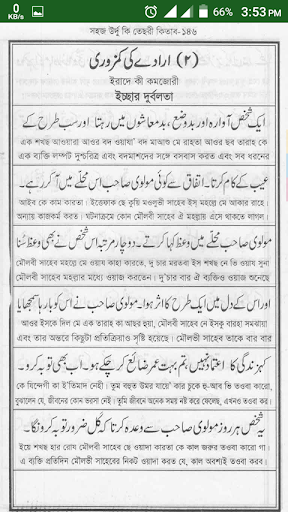 0
KB/s
66%
3:53 PM
সহজ উর্দু কি তেছরী কিতাব-১৪৬
(۲) ارادے کی کمزوری
ইরাদে কী কমজোরী
ইচ্ছার দুর্বলতা
ایک شخص آوارہ اور بد وضع، بدمعاشوں میں رہتا اور سب طرح کے
এক শখছ আওয়ারা আওর বদ ওয়াযা' বদ মাআশ মে রাহতা আওর ছব তারাহ কে
এক ব্যক্তি লম্পট দুশ্চরিত্র এবং বদমাশদের সঙ্গে বসবাস করত এবং সব ধরনের
عیب کے کام کرتا۔ اتفاق سے کوئی مولوی صاحب اس محلے میں آ کر رہے۔
আইব কে কাম কারতা। ইত্তেফাক ছে কুয়ি মওলুভী সাহেব ইস্ মহল্লে মে আকার রাহে।
অন্যায় কাজকর্ম করত। ঘটনাক্রমে কোন মৌলভী সাহেব ঐ মহল্লায় এসে থাকতে লাগল।
مولوی صاحب محلے میں وعظ کہا کرتے۔ دو چار مرتبہ اس شخص نے بھی وعظ سُنا
মৌলবী সাহেব মহল্লে মে ওয়ায কাহা কারতে, দু চার মরতবা ইস শখছ নে ভি ওয়ায সুনা
মৌলবী সাহেব মহল্লার মধ্যে ওয়াজ করতেন। দু'চার বার ঐ ব্যক্তিও ওয়াজ শুনেছে
اور اس کے دل میں ایک طرح کا اثر ہوا۔ مولوی صاحب نے اس کو بار ہا سمجھایا
আওর ইসকে দিল মে এক তারাহ কা আছর হুয়া, মৌলবী সাহেব নে ইসকু বারহা সমঝায়া
এবং তার অন্তরে কিছুটা প্রতিক্রিয়াও সৃষ্টি হয়েছে। মৌলভী সাহেব তাকে বার বার
کہ زندگی کا اعتماد نہیں، تم بہت عمر ضائع کر چکے ہو۔ اب بھی توبہ کرو۔
কে যিন্দেগী কা ই'তিমাদ নেহী। তুম বহুত উমর যায়ে' কার চুকে হু-আব ভি তওবা কারো,
বুঝালেন যে, জীবনের কোন ভরসা নেই। তুমি জীবনে অনেক সময় নষ্ট করে ফেলেছ, এখনও তওবা কর।
یہ شخص ہر روز مولوی صاحب سے وعدہ کرتا کہ کل ضرور توبہ کرونگا۔
ইয়ে শখছ হার রোয মৌলবী সাহেব ছে ওয়াদা কারতা কে কাল জরুর তওবা কারো গা।
এ ব্যক্তি প্রতিদিন মৌলভী সাহেবের নিকট ওয়াদা করত যে, কাল অবশ্যই তওবা করব।